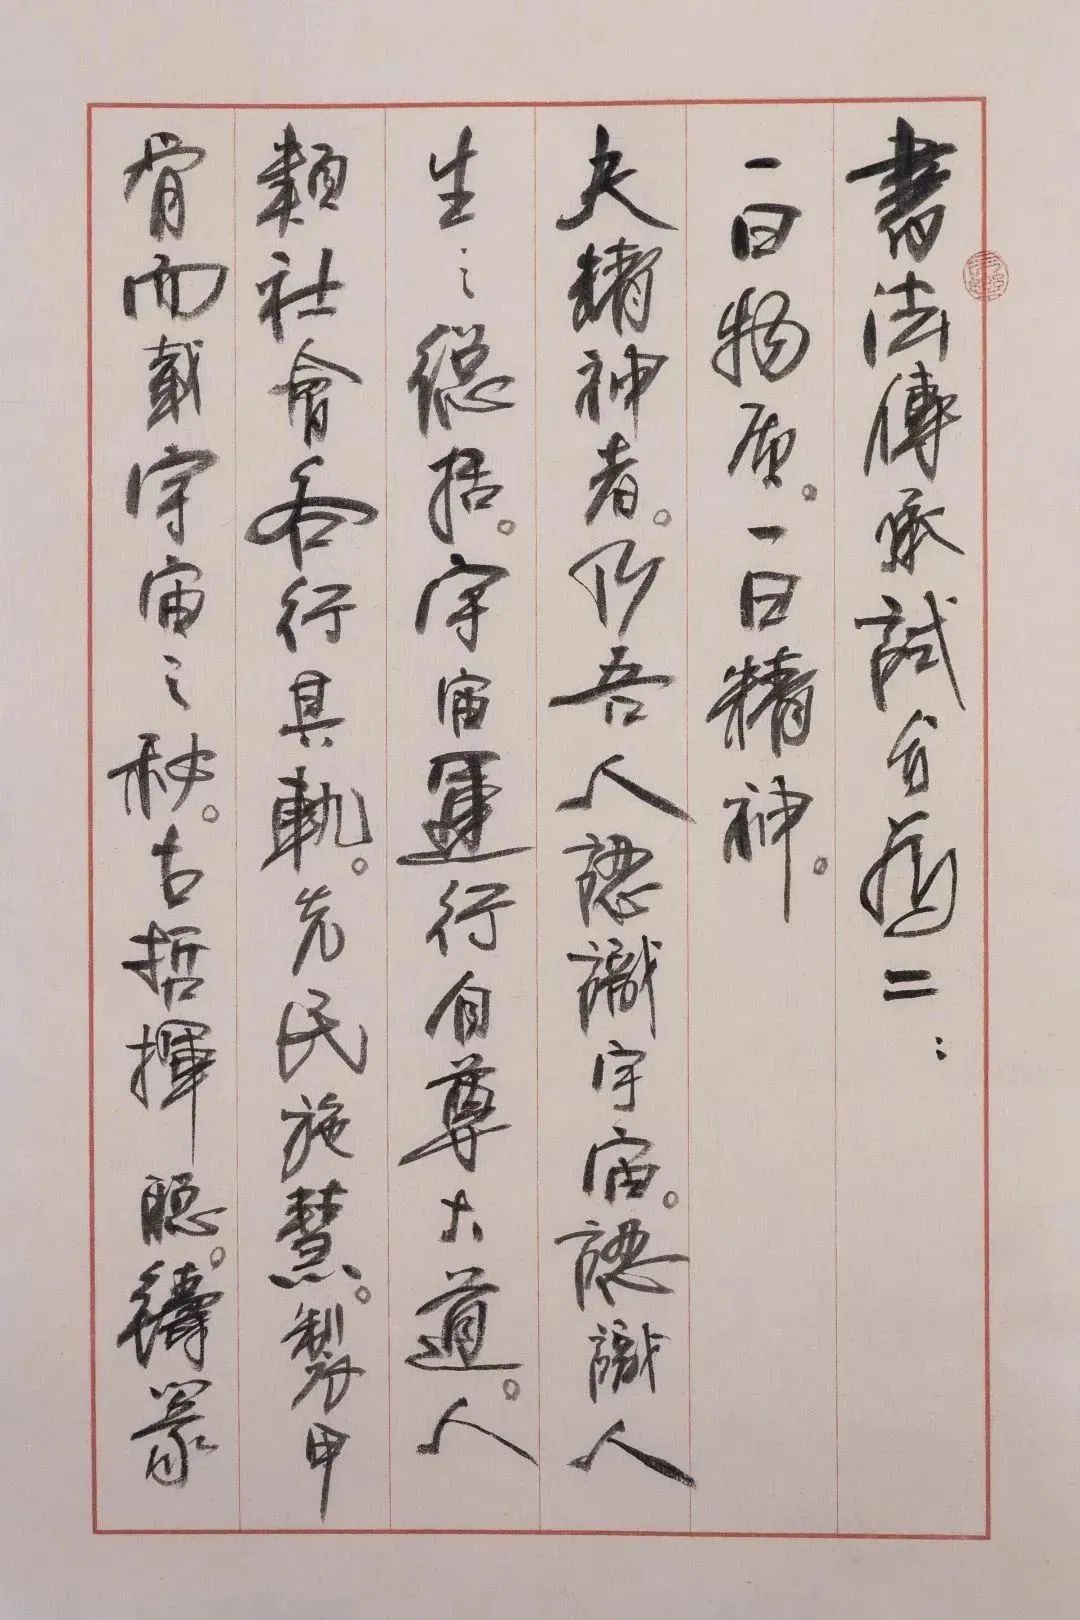 書法傳承試言篇二：
一曰物质。一曰精神。
夫精神者。乃吾人認識宇宙。認識人
生之總括。宇宙運行自尊大道。人
類社會各行其軌。先民施慧。製甲
骨而載宇宙之秘。古哲揮聰。鑄篆